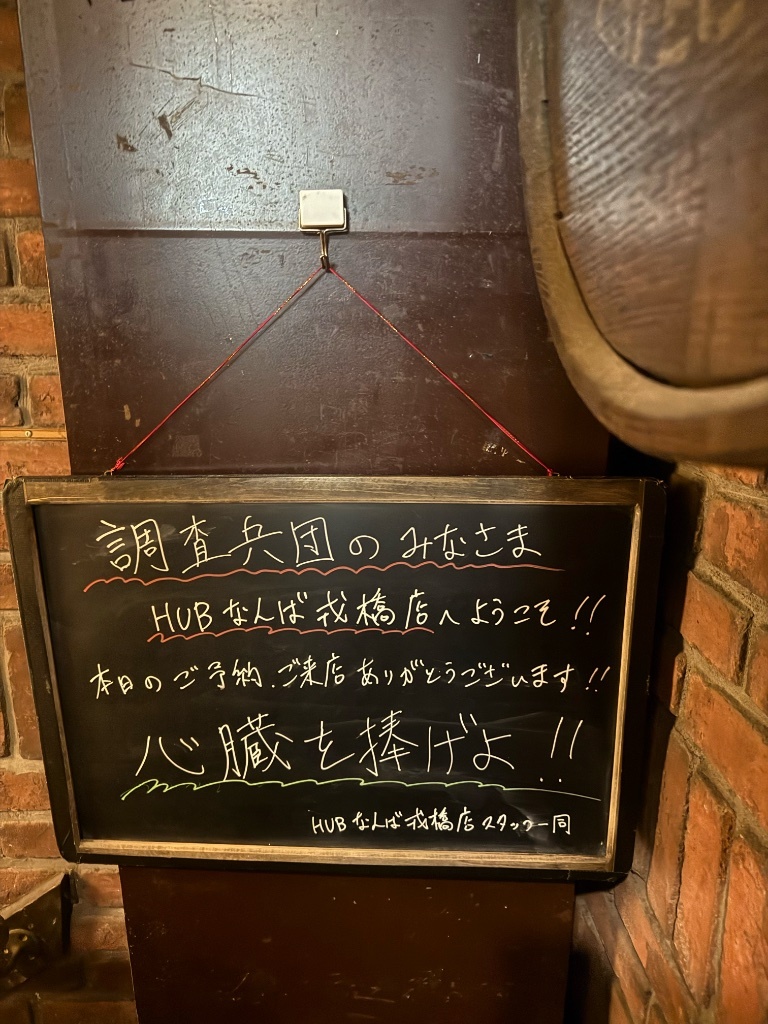 調査兵団のみなさま
HUBなんば戎橋店へようこそ!!
本日のご予約、ご来店ありがとうございます!!
心臓を捧げよ!!
HUBなんば戎橋店スタッフ一同